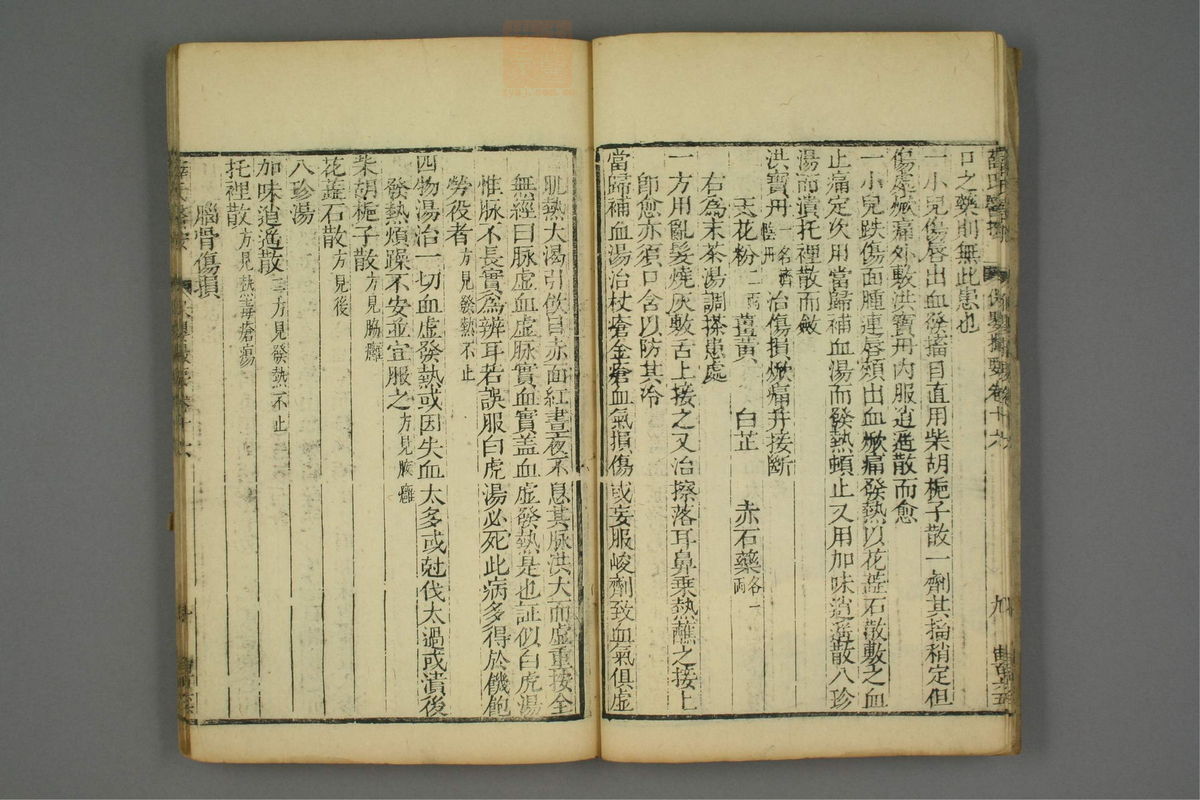 口之藥則無此患也
一小兒傷唇出血發搐目直用柴胡梔子散一劑其搐稍定但
傷處焮痛外敷洪寶丹內服逍遙散而愈
一小兒跌傷面腫連唇頰出血焮痛發熱以花蕋石散敷之血
止痛定次用當歸補血湯而發熱頓止又用加味逍遙散八珍
湯而潰托裡散而斂
洪寶丹一名濟陰丹治傷損焮痛并接斷
天花粉三兩 薑黃 白芷 赤石藥各一兩
右為末茶湯調搽患處
一方用亂髮燒灰敷舌上接之又治擦落耳鼻乘熱蘸之接上
即愈亦須口含以防其冷
當歸補血湯治杖瘡金瘡血氣損傷或妄服峻劑致血氣俱虛
肌熱大渴引飲目赤面紅晝夜不息其脉洪大而虛重按全
無經曰脉虛血虛脉實血實蓋血虛發熱是也証似白虎湯
惟脉不長實為辨耳若誤服白虎湯必死此病多得於饑飽
勞役者方見發熱不止
四物湯治一切血虛發熱或因失血太多或尅伐太過或潰後
發熱煩躁不安並宜服之方見腋癰
柴胡梔子散方見腦癰
花蕋石散方見後
八珍湯
加味逍遙散二方見發熱不止
托裡散方見熱毒瘡瘍
腦骨傷損